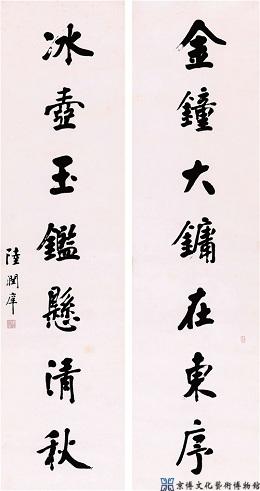 金鐘大鏞在東序
冰壺玉鑑懸清秋
陸潤庠
京博文化藝術博物館